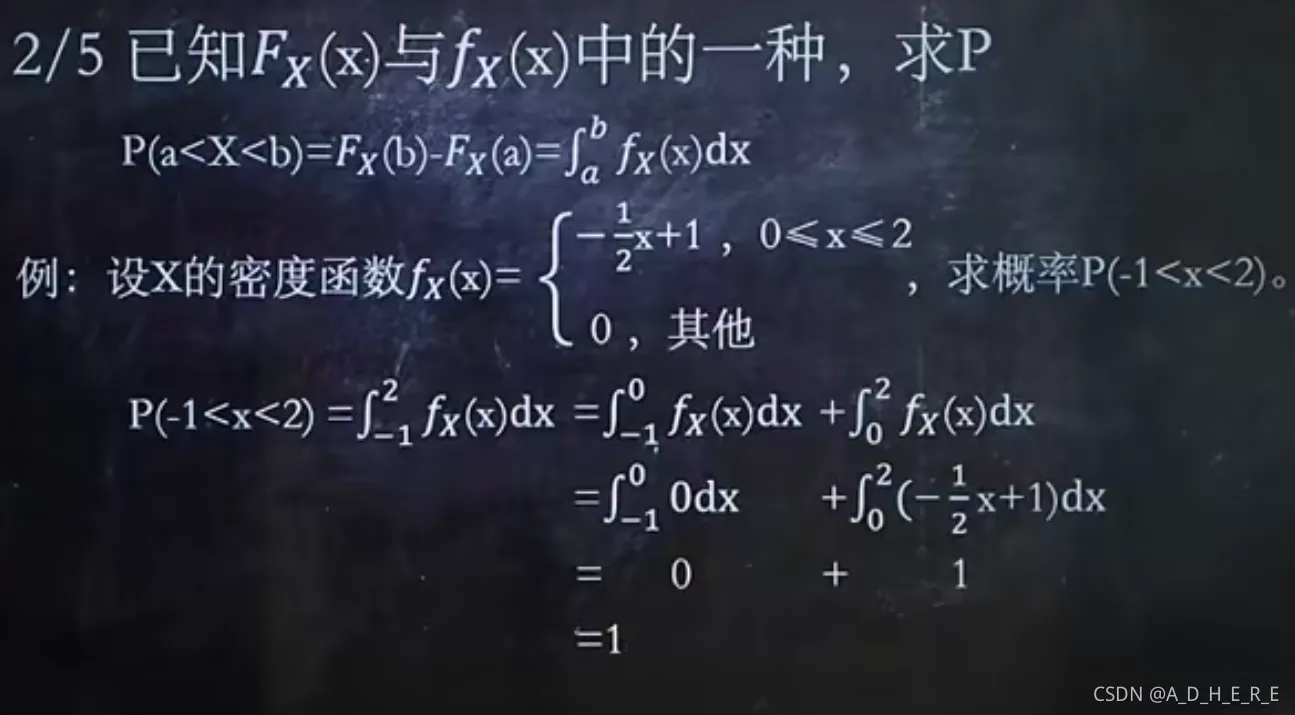 2/5 已知F_X(x)与f_X(x)中的一种，求P
P(a<X<b)=F_X(b)-F_X(a)=∫_a^b f_X(x)dx
例：设X的密度函数f_X(x)={ -1/2x+1，0≤x≤2
0，其他
，求概率P(-1<x<2)。
P(-1<x<2) =∫_{-1}^2 f_X(x)dx =∫_{-1}^0 f_X(x)dx +∫_0^2 f_X(x)dx
=∫_{-1}^0 0dx +∫_0^2(-1/2x+1)dx
= 0 + 1
=1
CSDN @A_D_H_E_R_E